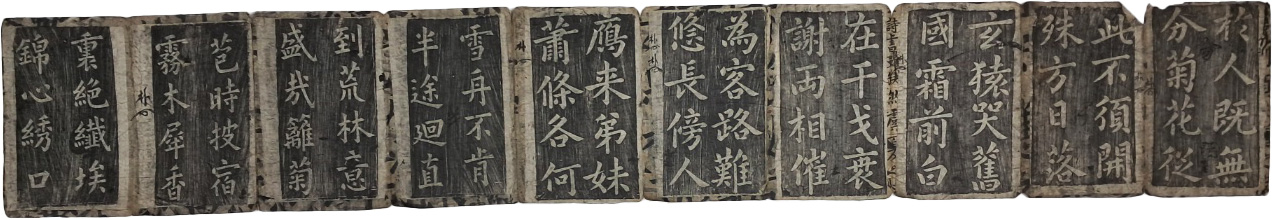 於人既無
分菊花從
此不須開
殊方日落
玄猿哭舊
國霜前白
在干戈衰
謝両相催
為客路難
悠長傍人
鴈来弟妹
蕭條各何
雪舟不肯
半途廻直
到荒林意
盛哉籬菊
苞時披宿
霧木犀香
裏絕纖埃
錦心綉口